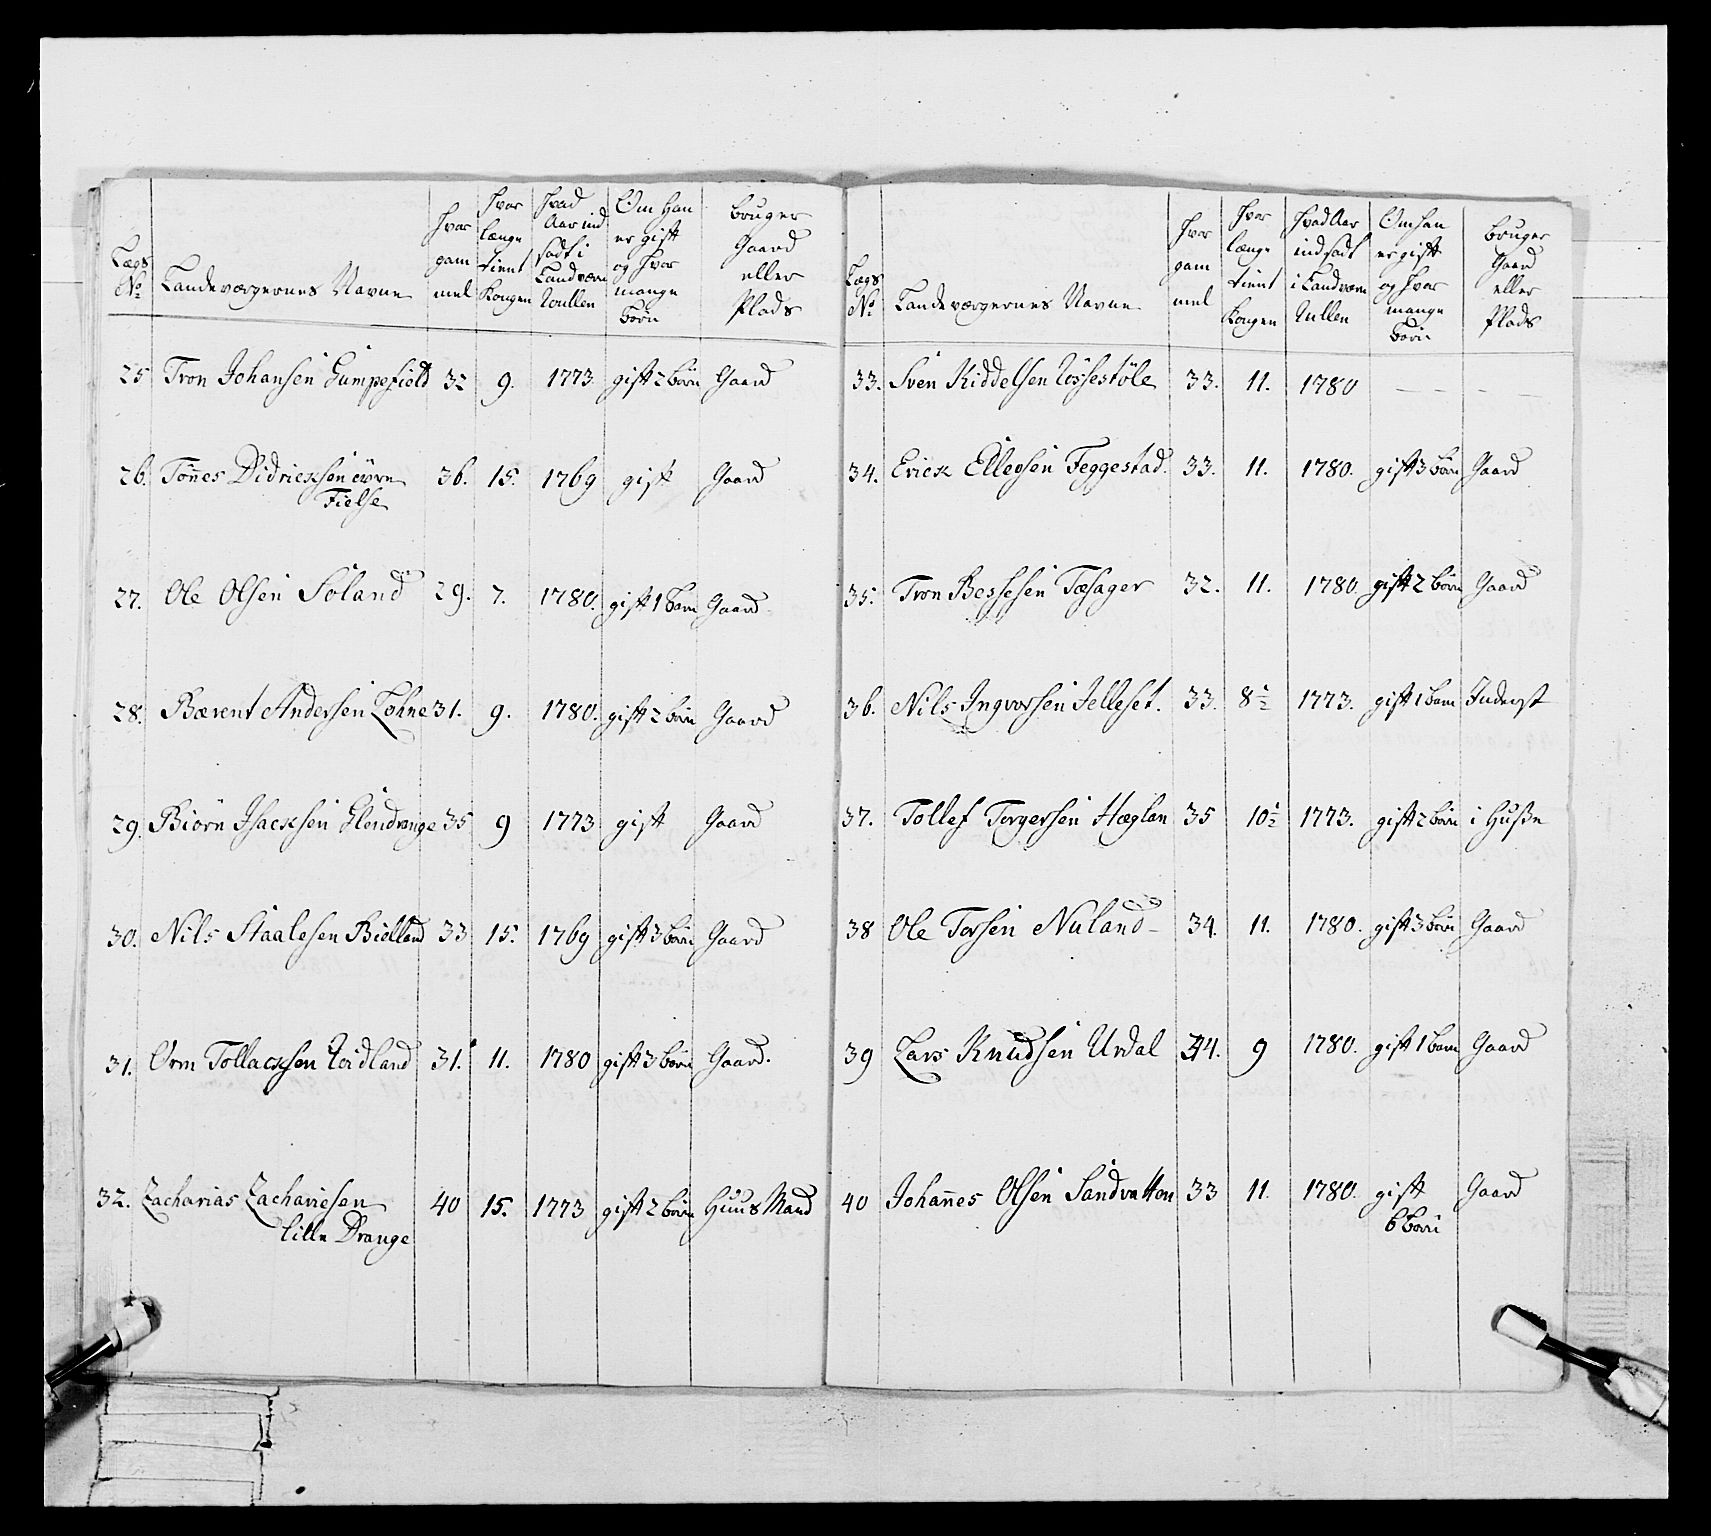 Lægs No | Landeværgernes Navne | Hvor gam mel | Hvor længe tient Kongen | Hvad Aar ind sadt i Landværn Rullen | Om Han er gift og Hvor mange Børn | bruger Gaard eller Plads
25 Tron Johansen Gumpefield 32 9. 1773 gift 2 børn Gaard
26. Tønnes Didricksen øvre 36. 15. 1769 gift Gaard
Fielse
27. Ole Olsen Søland 29. 7. 1780. gift 1 barn Gaard
28. Bærent Andersen Lohne 31. 9. 1780. gift 2 børn Gaard
29. Biørn Isacksen Glendrange 35 9 1773 gift Gaard
30. Nils Staalesen Bielland 33 15. 1769 gift 3 børn Gaard
31. Orm Tollacksen Hvidland 31. 11. 1780 gift 3 børn Gaard.
32. Zacharias Zachariesen 40 15. 1773 gift 2 børn Huus Mand
lille Drange
Lægs No | Landeværgernes Navne | Hvor gam mel | Hvor længe tient Kongen | Hvad Aar indsadt i Landværn Rullen | Om han er gift og Hvor mange Børn | bruger Gaard eller Plads
33. Sven Kiddelsen Røssestøle 33. 11. 1780 - - - - -
34. Erick Ellevsen Feggestad. 33. 11. 1780. gift 3 børn Gaard
35. Tron Bessesen Tæsager 32. 11. 1780. gift 2 børn Gaard
36. Nils Ingvorsen Jelleset. 33. 8 1/2 1773. gift 1 barn Inderst
37. Tollef Torgersen Hæglan 35 10 1/2 1773. gift 2 børn i Huße
38 Ole Torsen Nuland - 34. 11. 1780. gift 3 børn Gaard
39 Lars Knudsen Urdal 44. 9 1780. gift 1 barn Gaard
40 Johannes Olsen Sandvatton 33 11. 1780. gift Gaard
6 børn